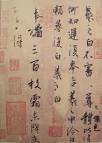 羲之白不審尊體比復
何如遲復奉告羲之中冷
無賴尋復白羲之白
奉橘三百枚霜未降未
可多得